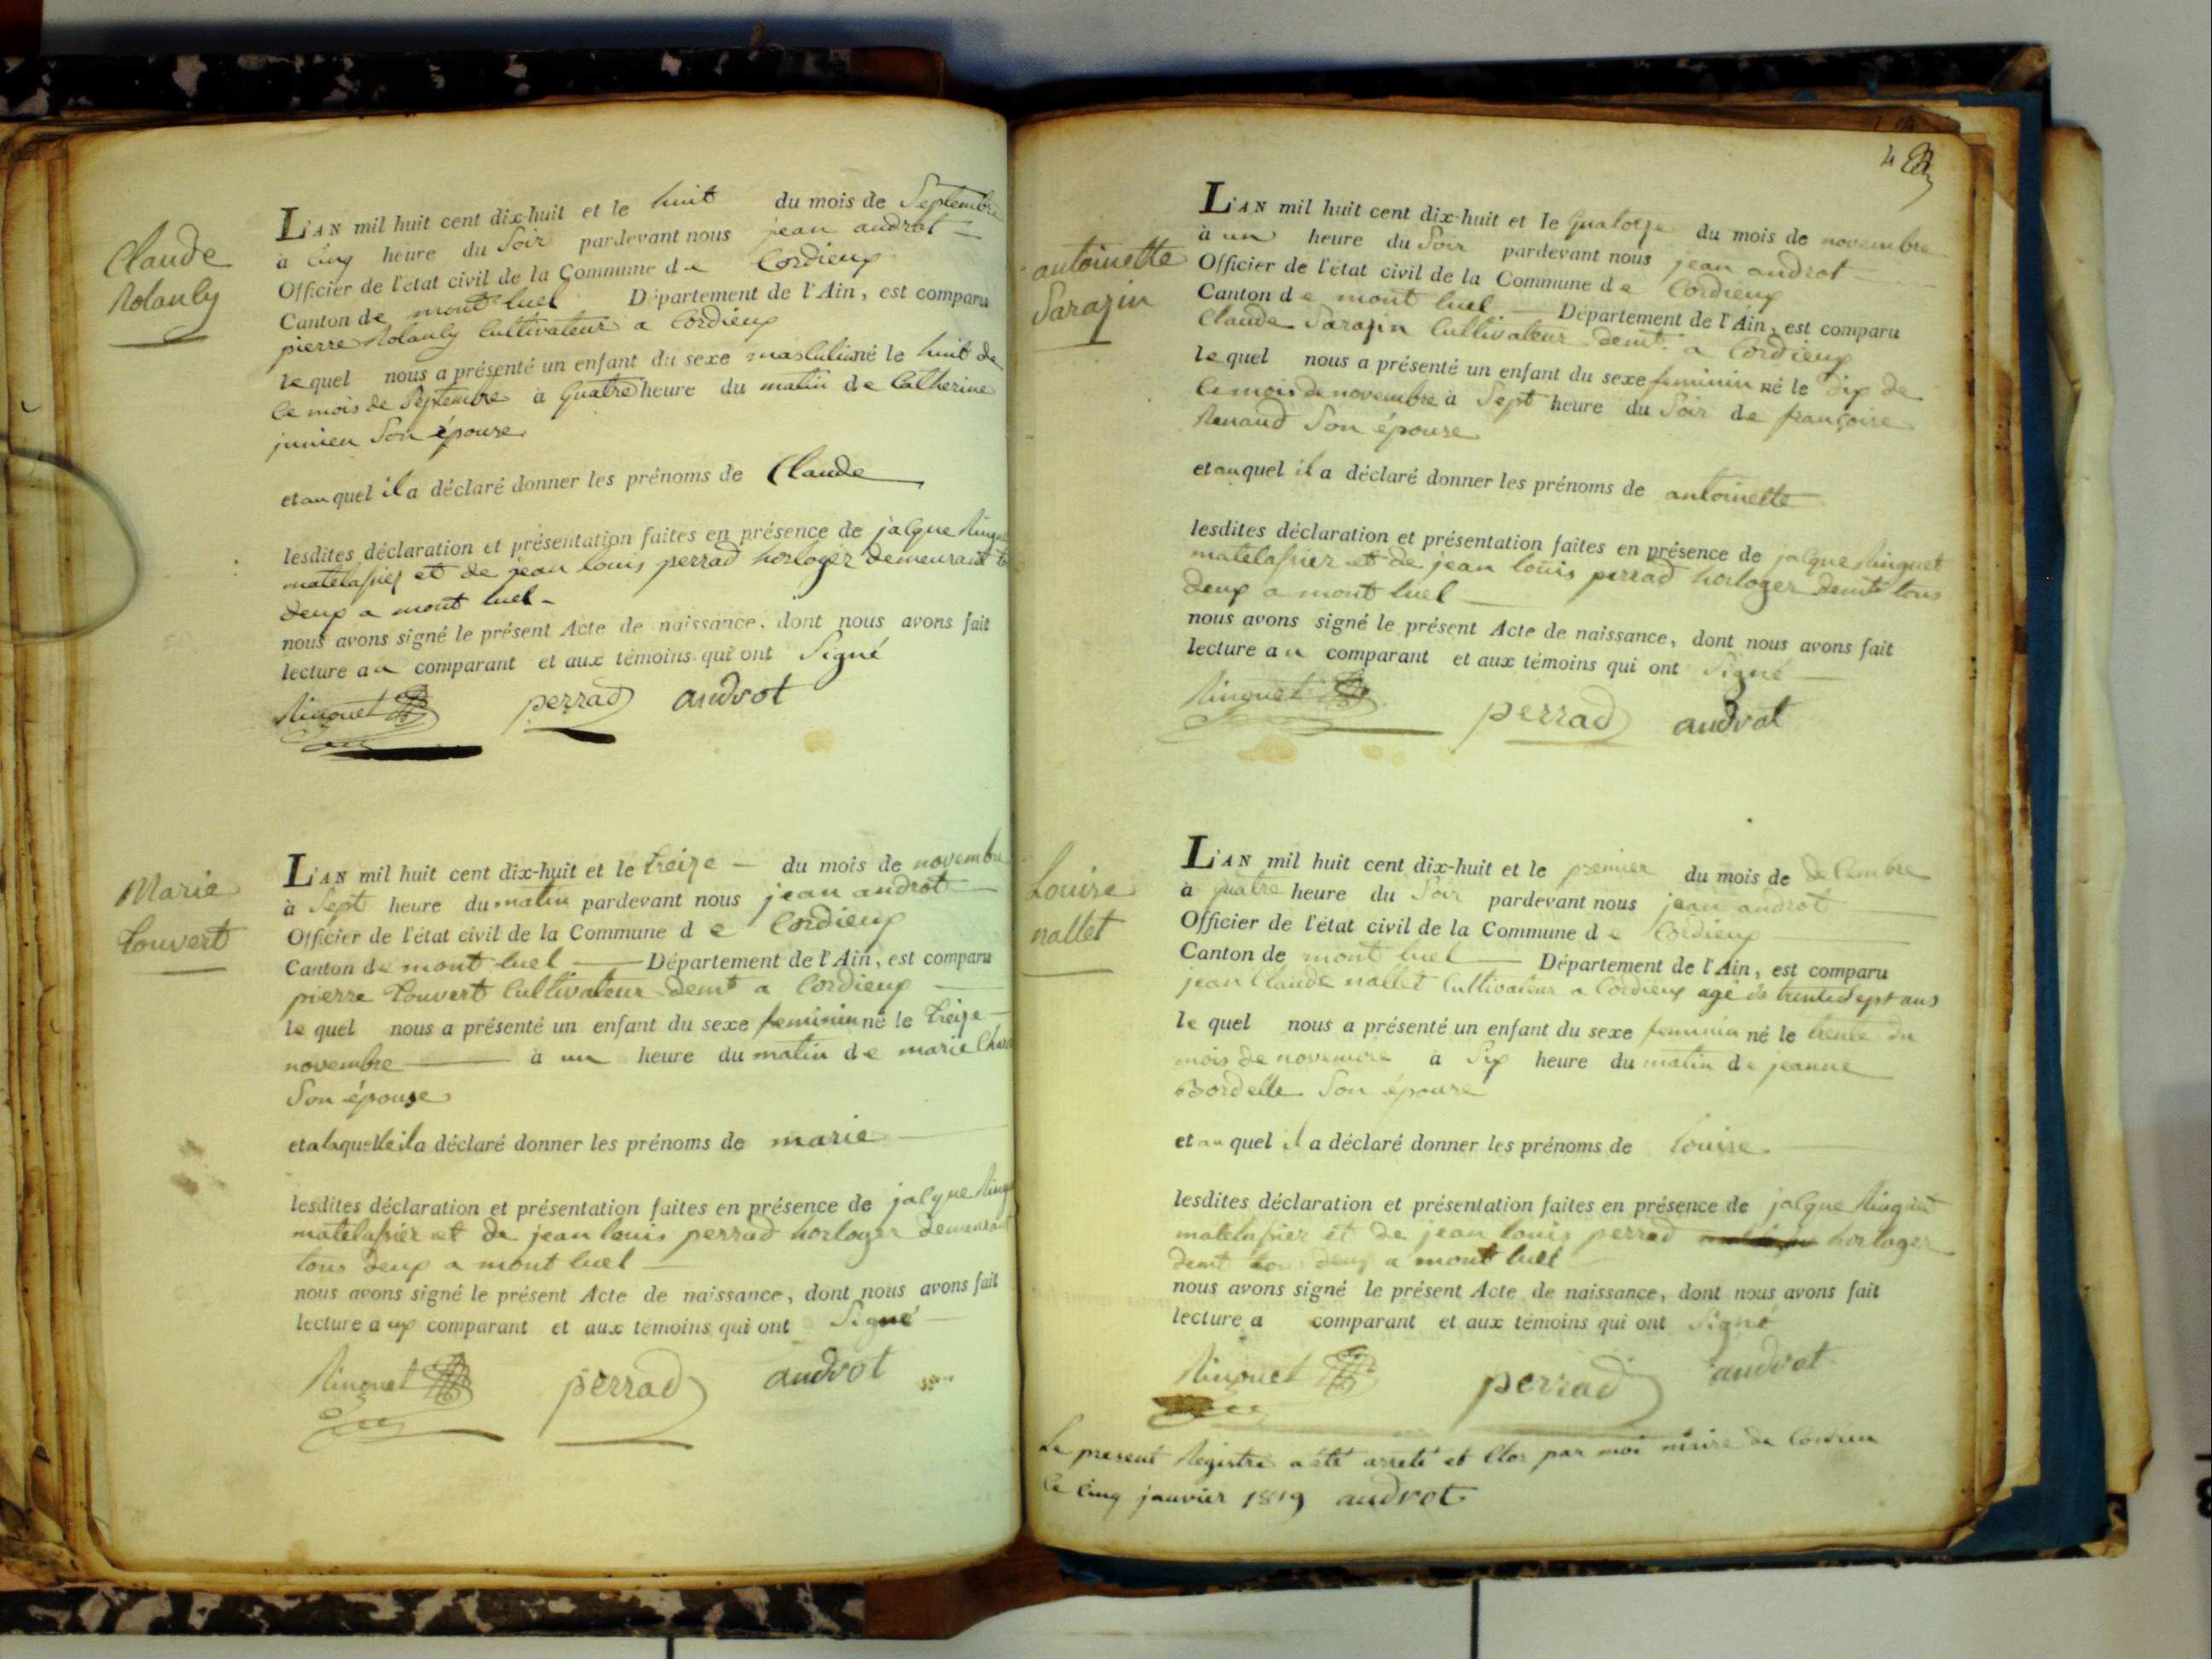 Claude
Rolanly
L'AN mil huit cent dix-huit et le huit du mois de Septembre
à cinq heure du Soir pardevant nous jean audrot
Officier de l'état civil de la Commune de Cordieux
Canton de mont luel Département de l'Ain, est comparu
pierre Rolanly Cultivateur a Cordieux
lequel nous a présenté un enfant du sexe masculin né le huit de
Ce mois de Septembre à Quatre heure du matin de Catherine
junien Son épouse
et au quel il a déclaré donner les prénoms de Claude
lesdites déclaration et présentation faites en présence de jacque
matelassier et de jean louis perrad horloger demeurant
deux a mont luel
nous avons signé le présent Acte de naissance, dont nous avons fait
lecture au comparant et aux témoins qui ont Signé
Ringuet perrad audrot
Marie
Couvert
L'AN mil huit cent dix-huit et le treize du mois de novembre
à Sept heure du matin pardevant nous jean audrot
Officier de l'état civil de la Commune de Cordieux
Canton de mont luel Département de l'Ain, est comparu
pierre Couvert Cultivateur demt a Cordieux
lequel nous a présenté un enfant du sexe feminin né le treize
novembre à un heure du matin de marie
Son épouse
et a laquelle il a déclaré donner les prénoms de marie
lesdites déclaration et présentation faites en présence de jacque
matelassier et de jean louis perrad horloger demeurant
tous deux a mont luel
nous avons signé le présent Acte de naissance, dont nous avons fait
lecture aux comparant et aux témoins qui ont Signé
Ringuet perrad audrot
4
antoinette
Sarazin
L'AN mil huit cent dix-huit et le Quatorze du mois de novembre
à un heure du Soir pardevant nous jean audrot
Officier de l'état civil de la Commune de Cordieux
Canton de mont luel Département de l'Ain, est comparu
Claude Sarazin Cultivateur demt a Cordieux
lequel nous a présenté un enfant du sexe feminin né le dix de
Ce mois de novembre à Sept heure du Soir de françoise
Renaud Son épouse
et au quel il a déclaré donner les prénoms de antoinette
lesdites déclaration et présentation faites en présence de jacque Ringuet
matelassier et de jean louis perrad horloger demt tous
deux a mont luel
nous avons signé le présent Acte de naissance, dont nous avons fait
lecture au comparant et aux témoins qui ont Signé
Ringuet perrad audrot
Louise
nallet
L'AN mil huit cent dix-huit et le premier du mois de decembre
à quatre heure du Soir pardevant nous jean audrot
Officier de l'état civil de la Commune de Cordieux
Canton de mont luel Département de l'Ain, est comparu
jean Claude nallet Cultivateur a Cordieux agé de trente Sept ans
lequel nous a présenté un enfant du sexe feminin né le trente du
mois de novembre à Six heure du matin de jeanne
Bordelle Son épouse
et au quel il a déclaré donner les prénoms de louise
lesdites déclaration et présentation faites en présence de jacque Ringuet
matelassier et de jean louis perrad horloger
demt tous deux a mont luel
nous avons signé le présent Acte de naissance, dont nous avons fait
lecture a comparant et aux témoins qui ont Signé
Ringuet perrad audrot
Le present Registre a été arreté et Clos par moi maire de Cordieux
Ce Cinq janvier 1819 audrot